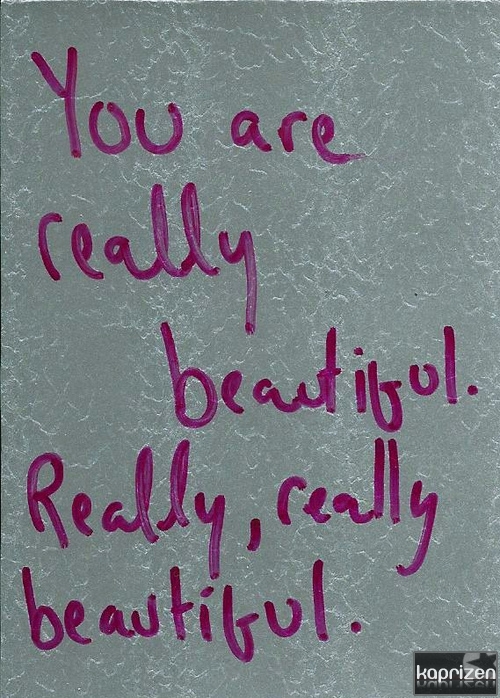 You are
really
beautiful.
Really, really
beautiful.
kaprizen